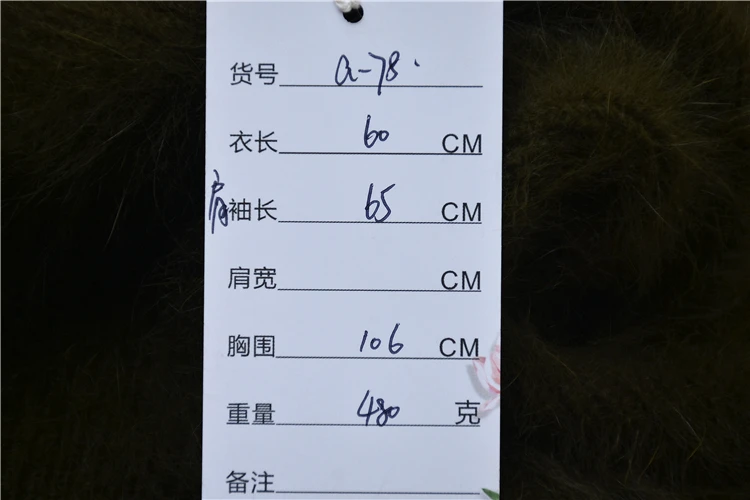 货号 a-78.
衣长 60 CM
肩袖长 65 CM
肩宽 CM
胸围 106 CM
重量 480 克
备注